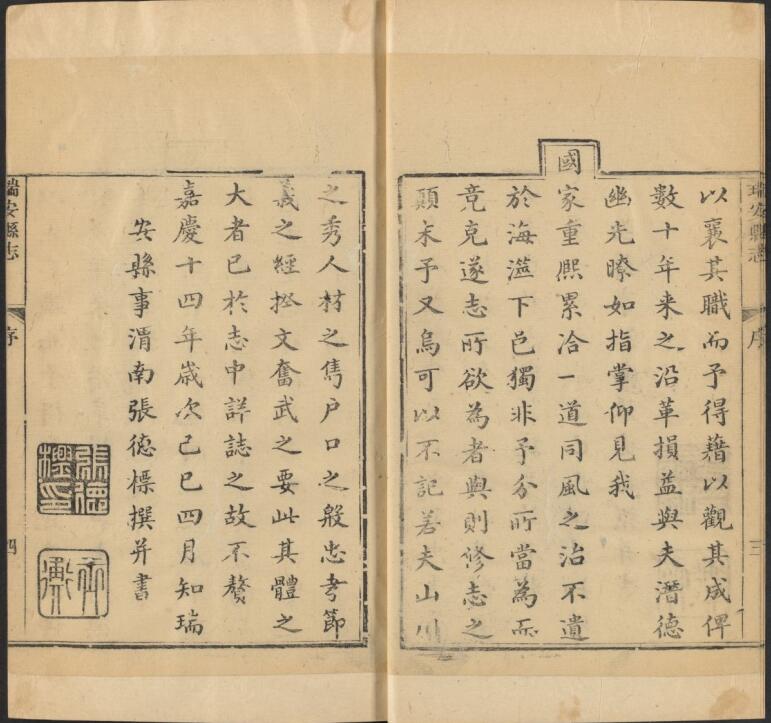 以襄其職而予得藉以觀其成俾
數十年来之沿革損益與夫潛德
幽光瞭如指掌仰見我
國家重熈累洽一道同風之治不遺
於海澨下邑獨非予分所當為而
竟克遂志所欲為者與則修志之
顛末予又烏可以不記若夫山川
瑞安縣志
序
三
之秀人材之雋户口之殷忠孝節
義之經揆文奮武之要此其體之
大者已於志中詳誌之故不贅
嘉慶十四年歲次己巳四月知瑞
安縣事渭南張德標撰并書
張德標印
瑞安縣志
序
四